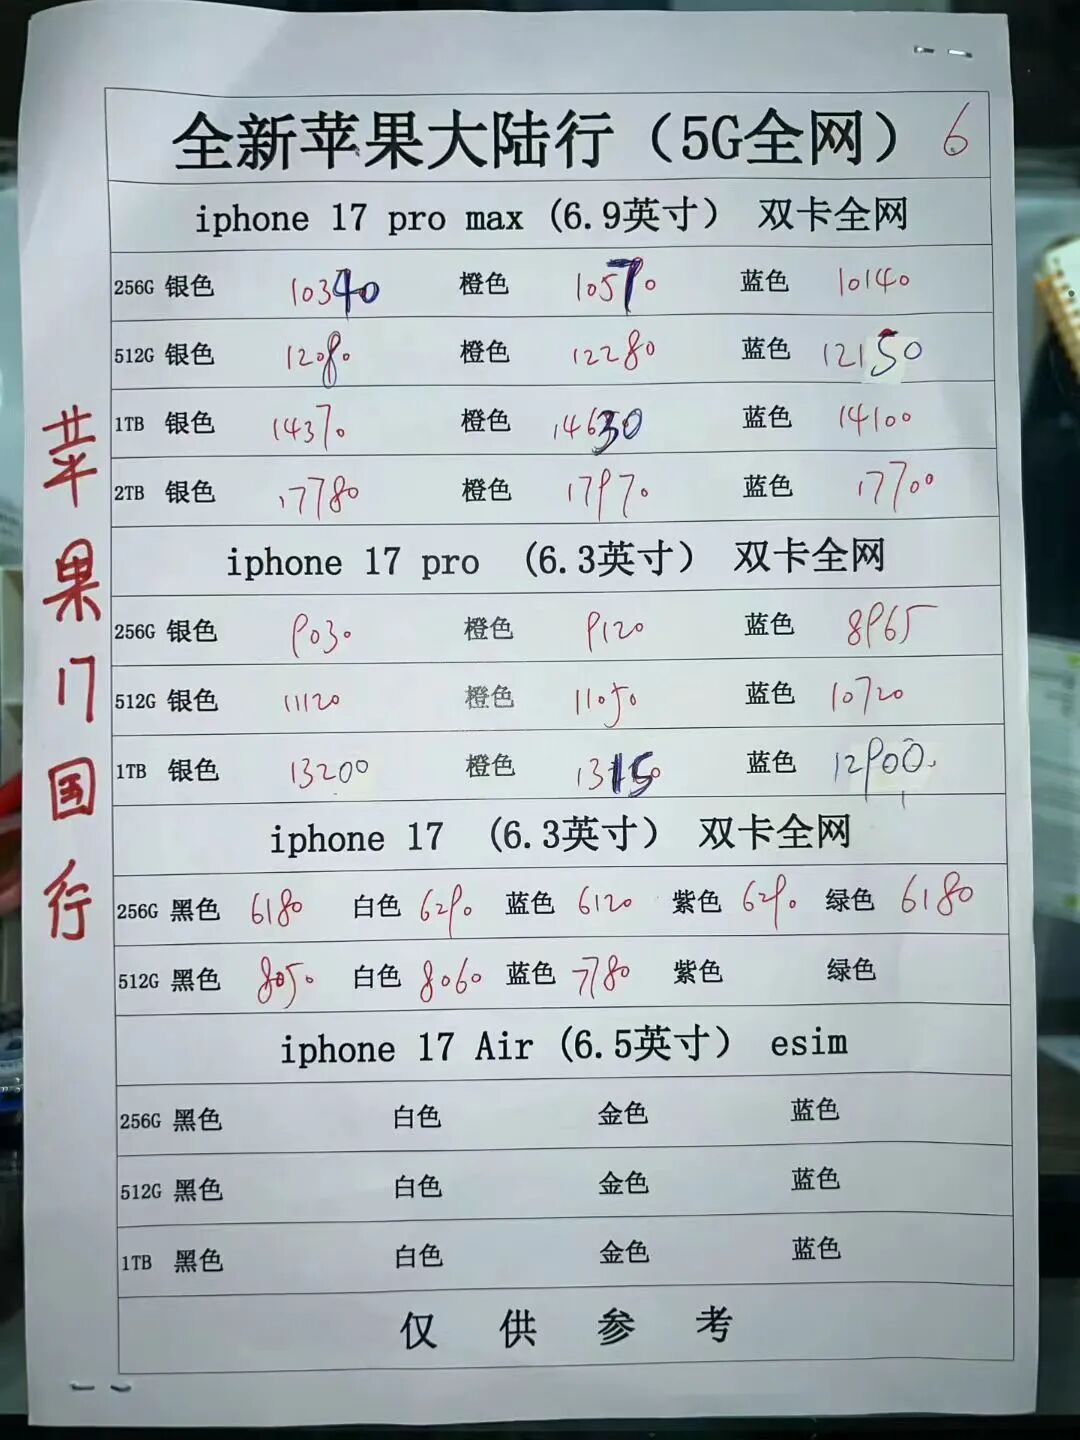 全新苹果大陆行（5G全网） 6
iphone 17 pro max (6.9英寸） 双卡全网
256G 银色 10340 橙色 10570 蓝色 10140
512G 银色 12080 橙色 12280 蓝色 12150
1TB 银色 14370 橙色 14630 蓝色 14100
2TB 银色 17780 橙色 17970 蓝色 17700
iphone 17 pro (6.3英寸） 双卡全网
256G 银色 9030 橙色 9120 蓝色 8965
512G 银色 11120 橙色 11050 蓝色 10720
1TB 银色 13200 橙色 蓝色 12900
iphone 17 (6.3英寸） 双卡全网
256G 黑色 6180 白色 6290 蓝色 6120 紫色 6290 绿色 6180
512G 黑色 8050 白色 8060 蓝色 7780 紫色 绿色
iphone 17 Air (6.5英寸） esim
256G 黑色 白色 金色 蓝色
512G 黑色 白色 金色 蓝色
1TB 黑色 白色 金色 蓝色
仅供参考
苹果17国行